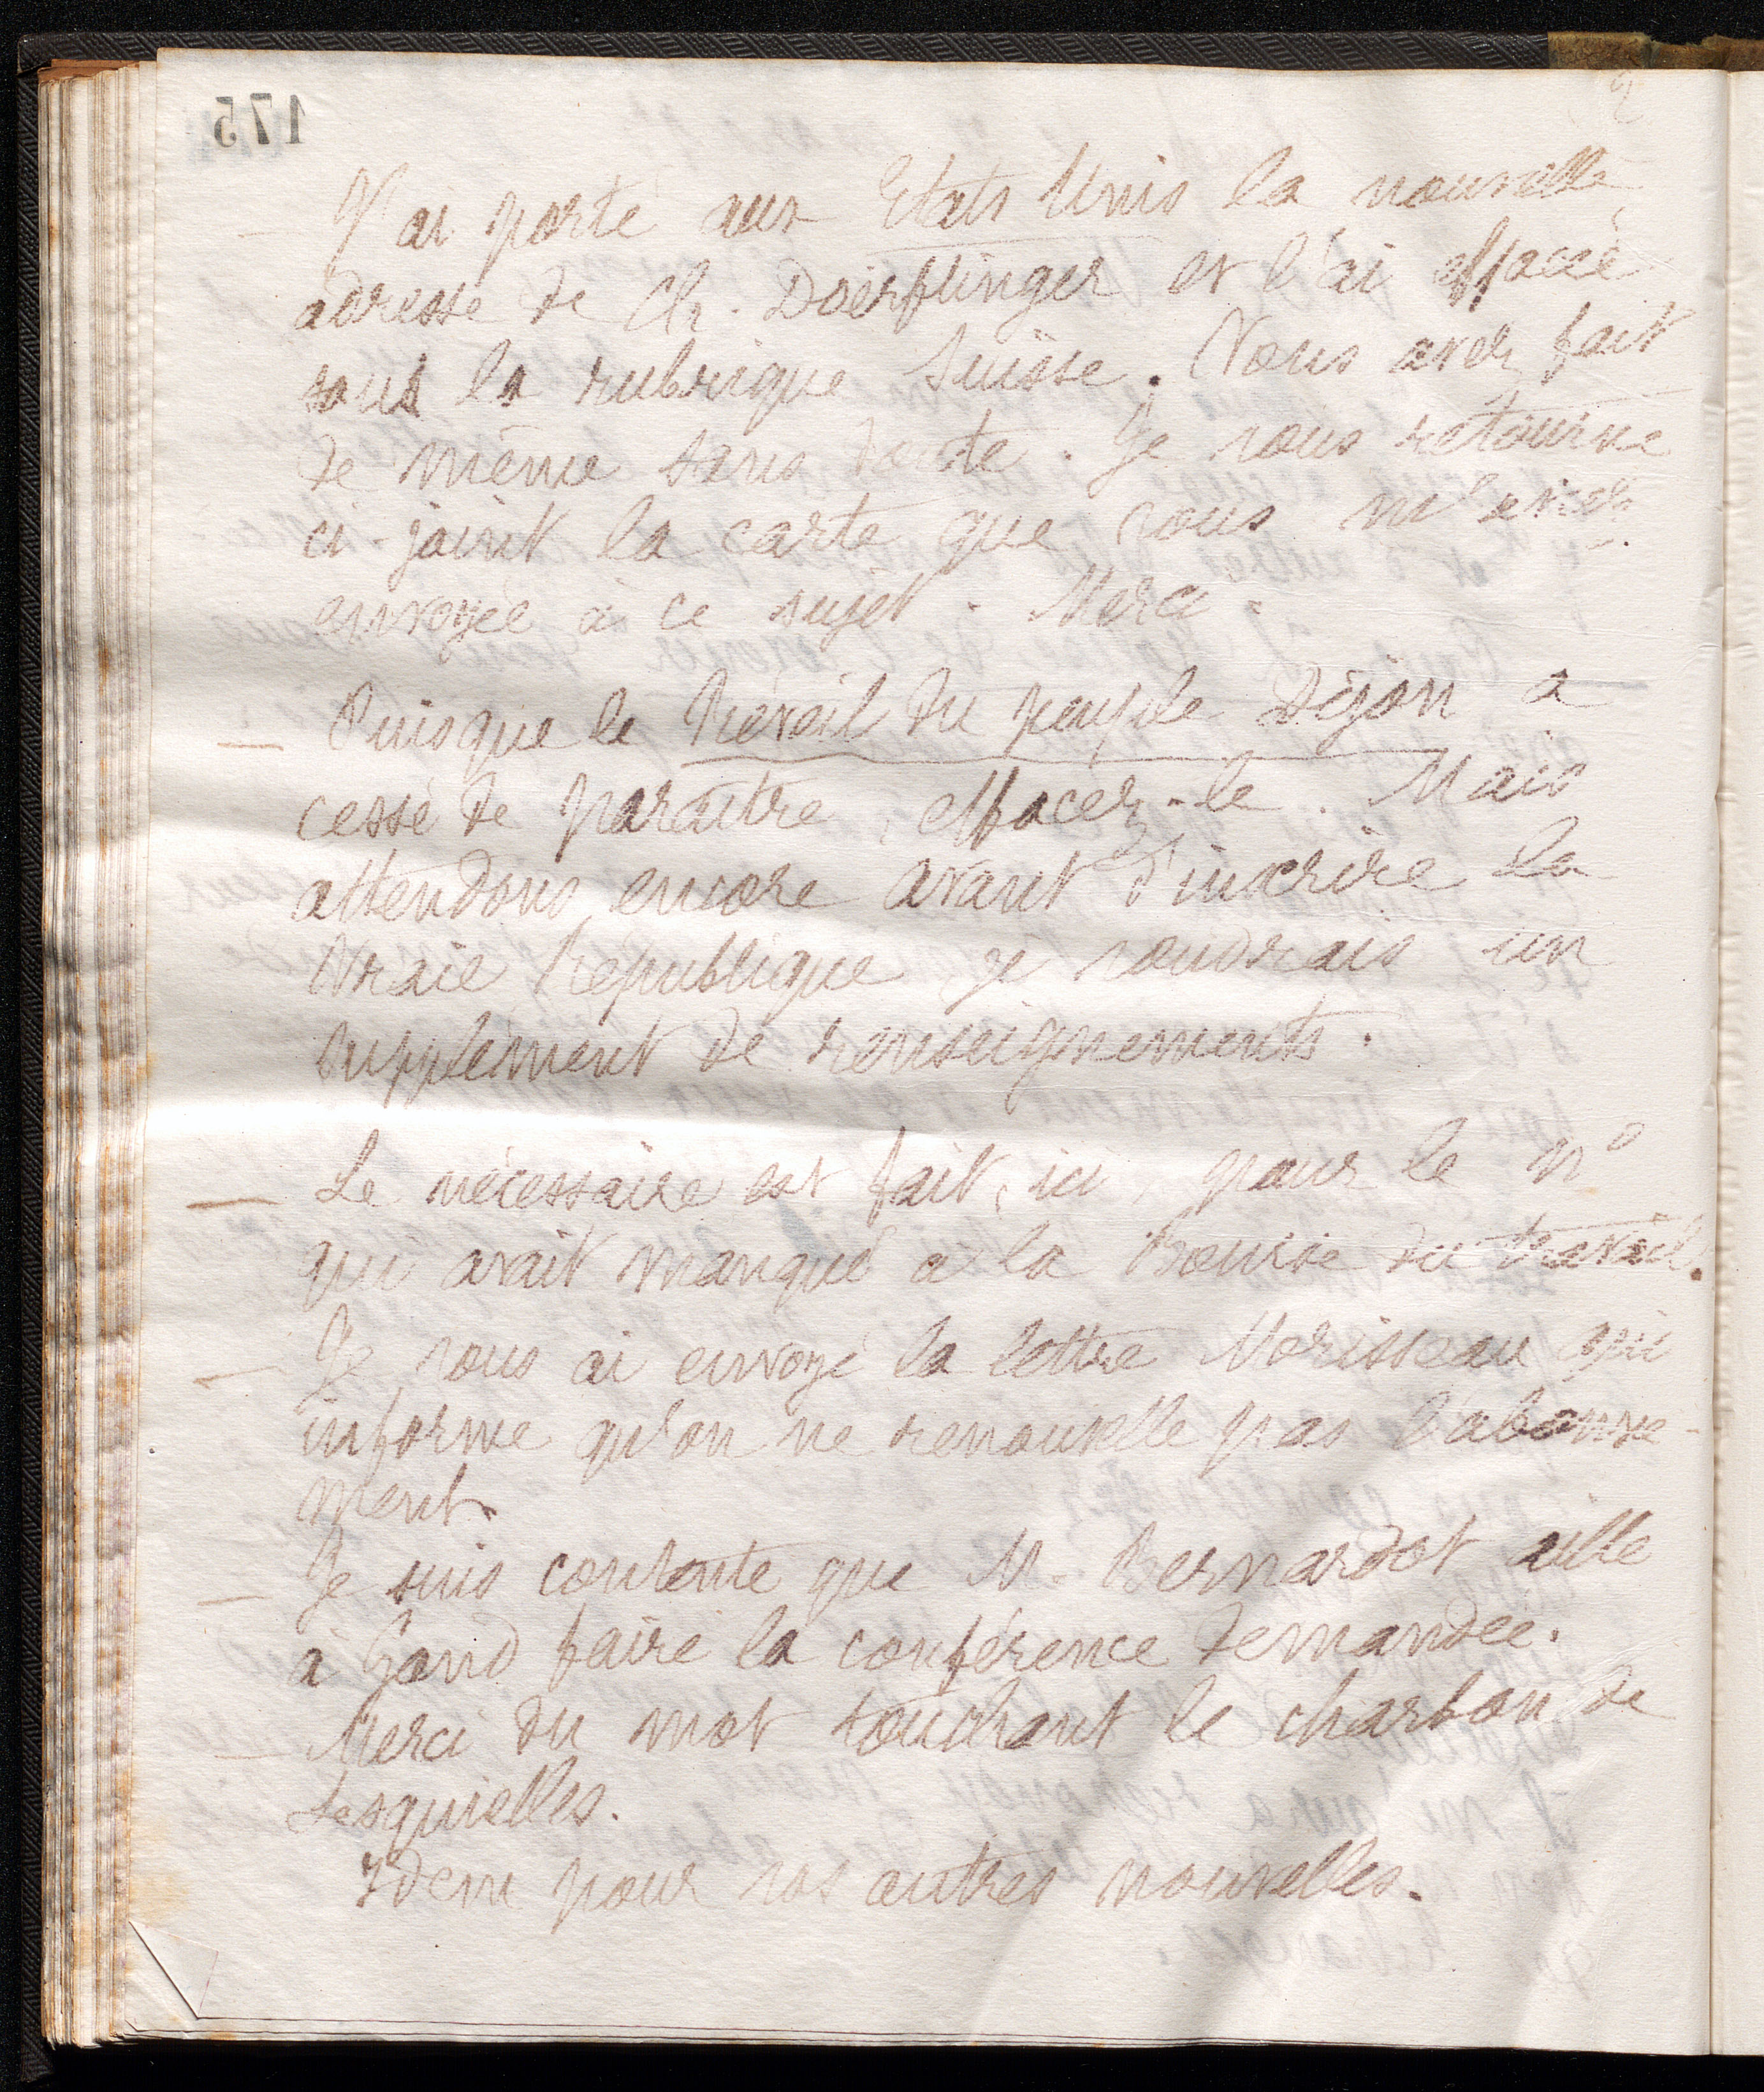 175
2
— J'ai porté aux Etats Unis la nouvelle
adresse de Ch. Doerflinger et l'ai effacé
sous la rubrique Suisse. Vous avez fait
de même sans doute. Je vous retourne
ci-joint la carte que vous m'avez
envoyée à ce sujet. Merci.
— Puisque le Réveil du peuple Dijon a
cessé de paraître, effacez-le. Mais
attendons encore avant d'inscrire la
Vraie République je voudrais un
supplément de renseignements.
— Le nécessaire est fait, ici, pour le no
qui avait manqué à la Bourse du travail.
— Je vous ai envoyé la lettre Morisseau qui
informe qu'on ne renouvelle pas l'abonne-
ment.
— Je suis contente que M. Bernardot aille
à Gand faire la conférence demandée.
— Merci du mot touchant le charbon de
Lesquielles.
Idem pour vos autres nouvelles.